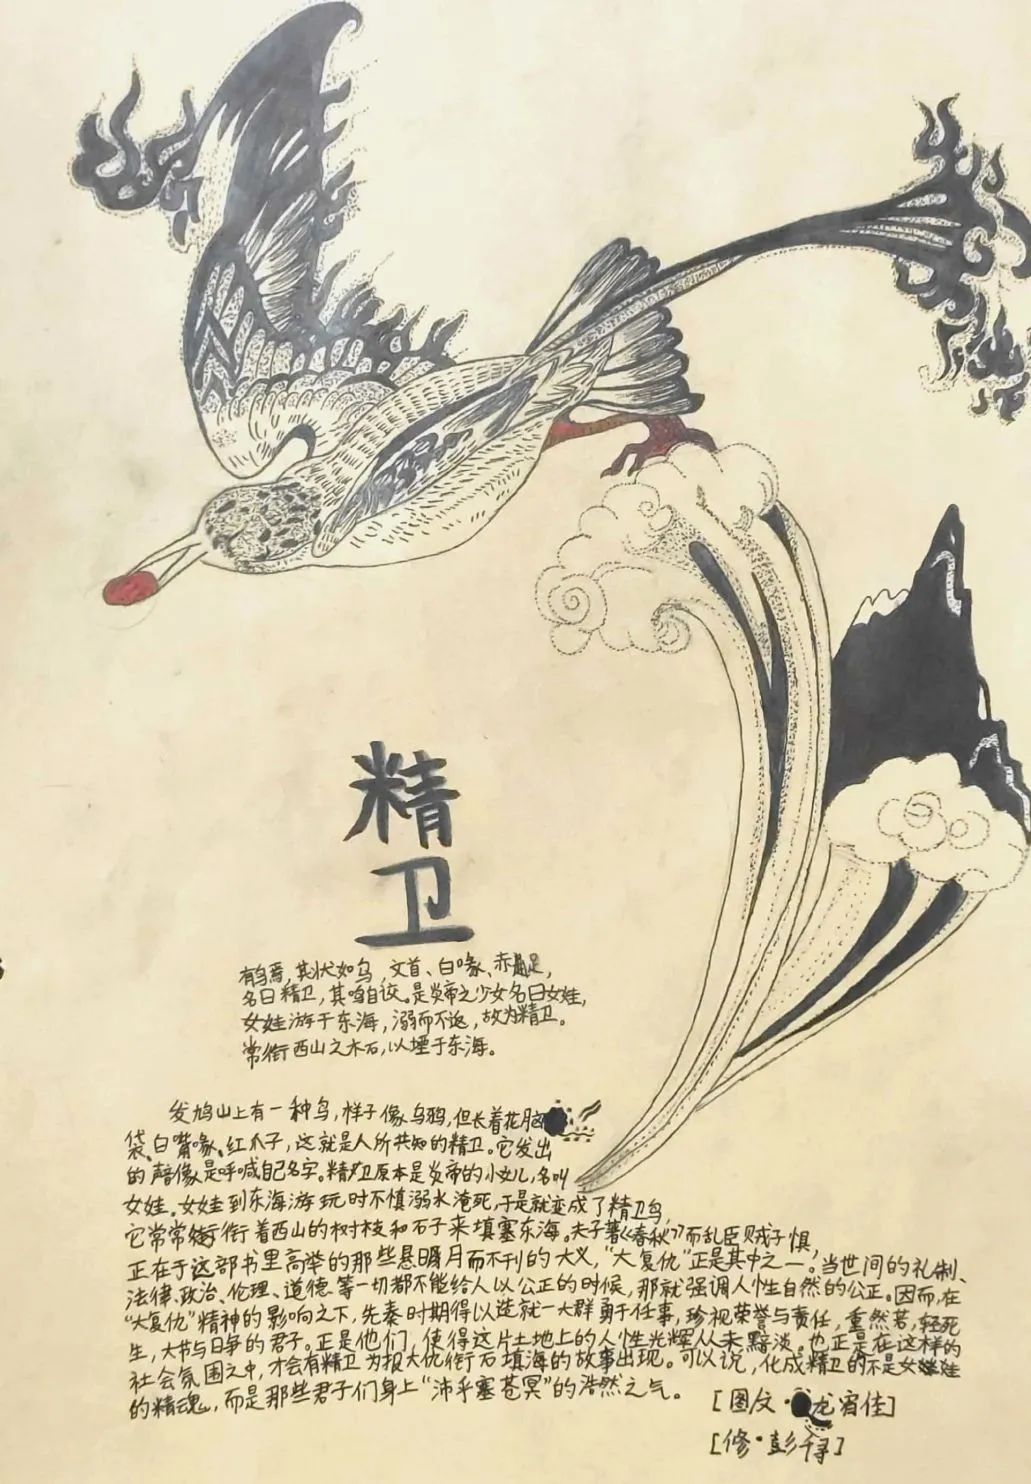 精
卫
有鸟焉,其状如乌,文首、白喙、赤足,
名曰精卫,其鸣自詨。是炎帝之少女名曰女娃,
女娃游于东海,溺而不返,故为精卫。
常衔西山之木石,以堙于东海。
发鸠山上有一种鸟,样子像乌鸦,但长着花脑
袋、白嘴喙、红爪子,这就是人所共知的精卫。它发出
的声音像是呼喊自己名字。精卫原本是炎帝的小女儿,名叫
女娃。女娃到东海游玩时不慎溺水淹死,于是就变成了精卫鸟,
它常常衔着西山的树枝和石子来填塞东海。夫子著《春秋》而乱臣贼子惧,
正在于这部书里高举的那些悬日月而不刊的大义,“大复仇”正是其中之一。当世间的礼制、
法律、政治、伦理、道德等一切都不能给人以公正的时候,那就强调人性自然的公正。因而,在
“大复仇”精神的影响之下,先秦时期得以造就一大群勇于任事,珍视荣誉与责任,重然若,轻死
生,大节与日争的君子。正是他们,使得这片土地上的人性光辉从未黯淡。也正是在这样的
社会氛围之中,才会有精卫为报大仇衔石填海的故事出现。可以说,化成精卫的不是女娃
的精魂,而是那些君子们身上“沛乎塞苍冥”的浩然之气。
[图文·龙宿佳]
[修·彭]